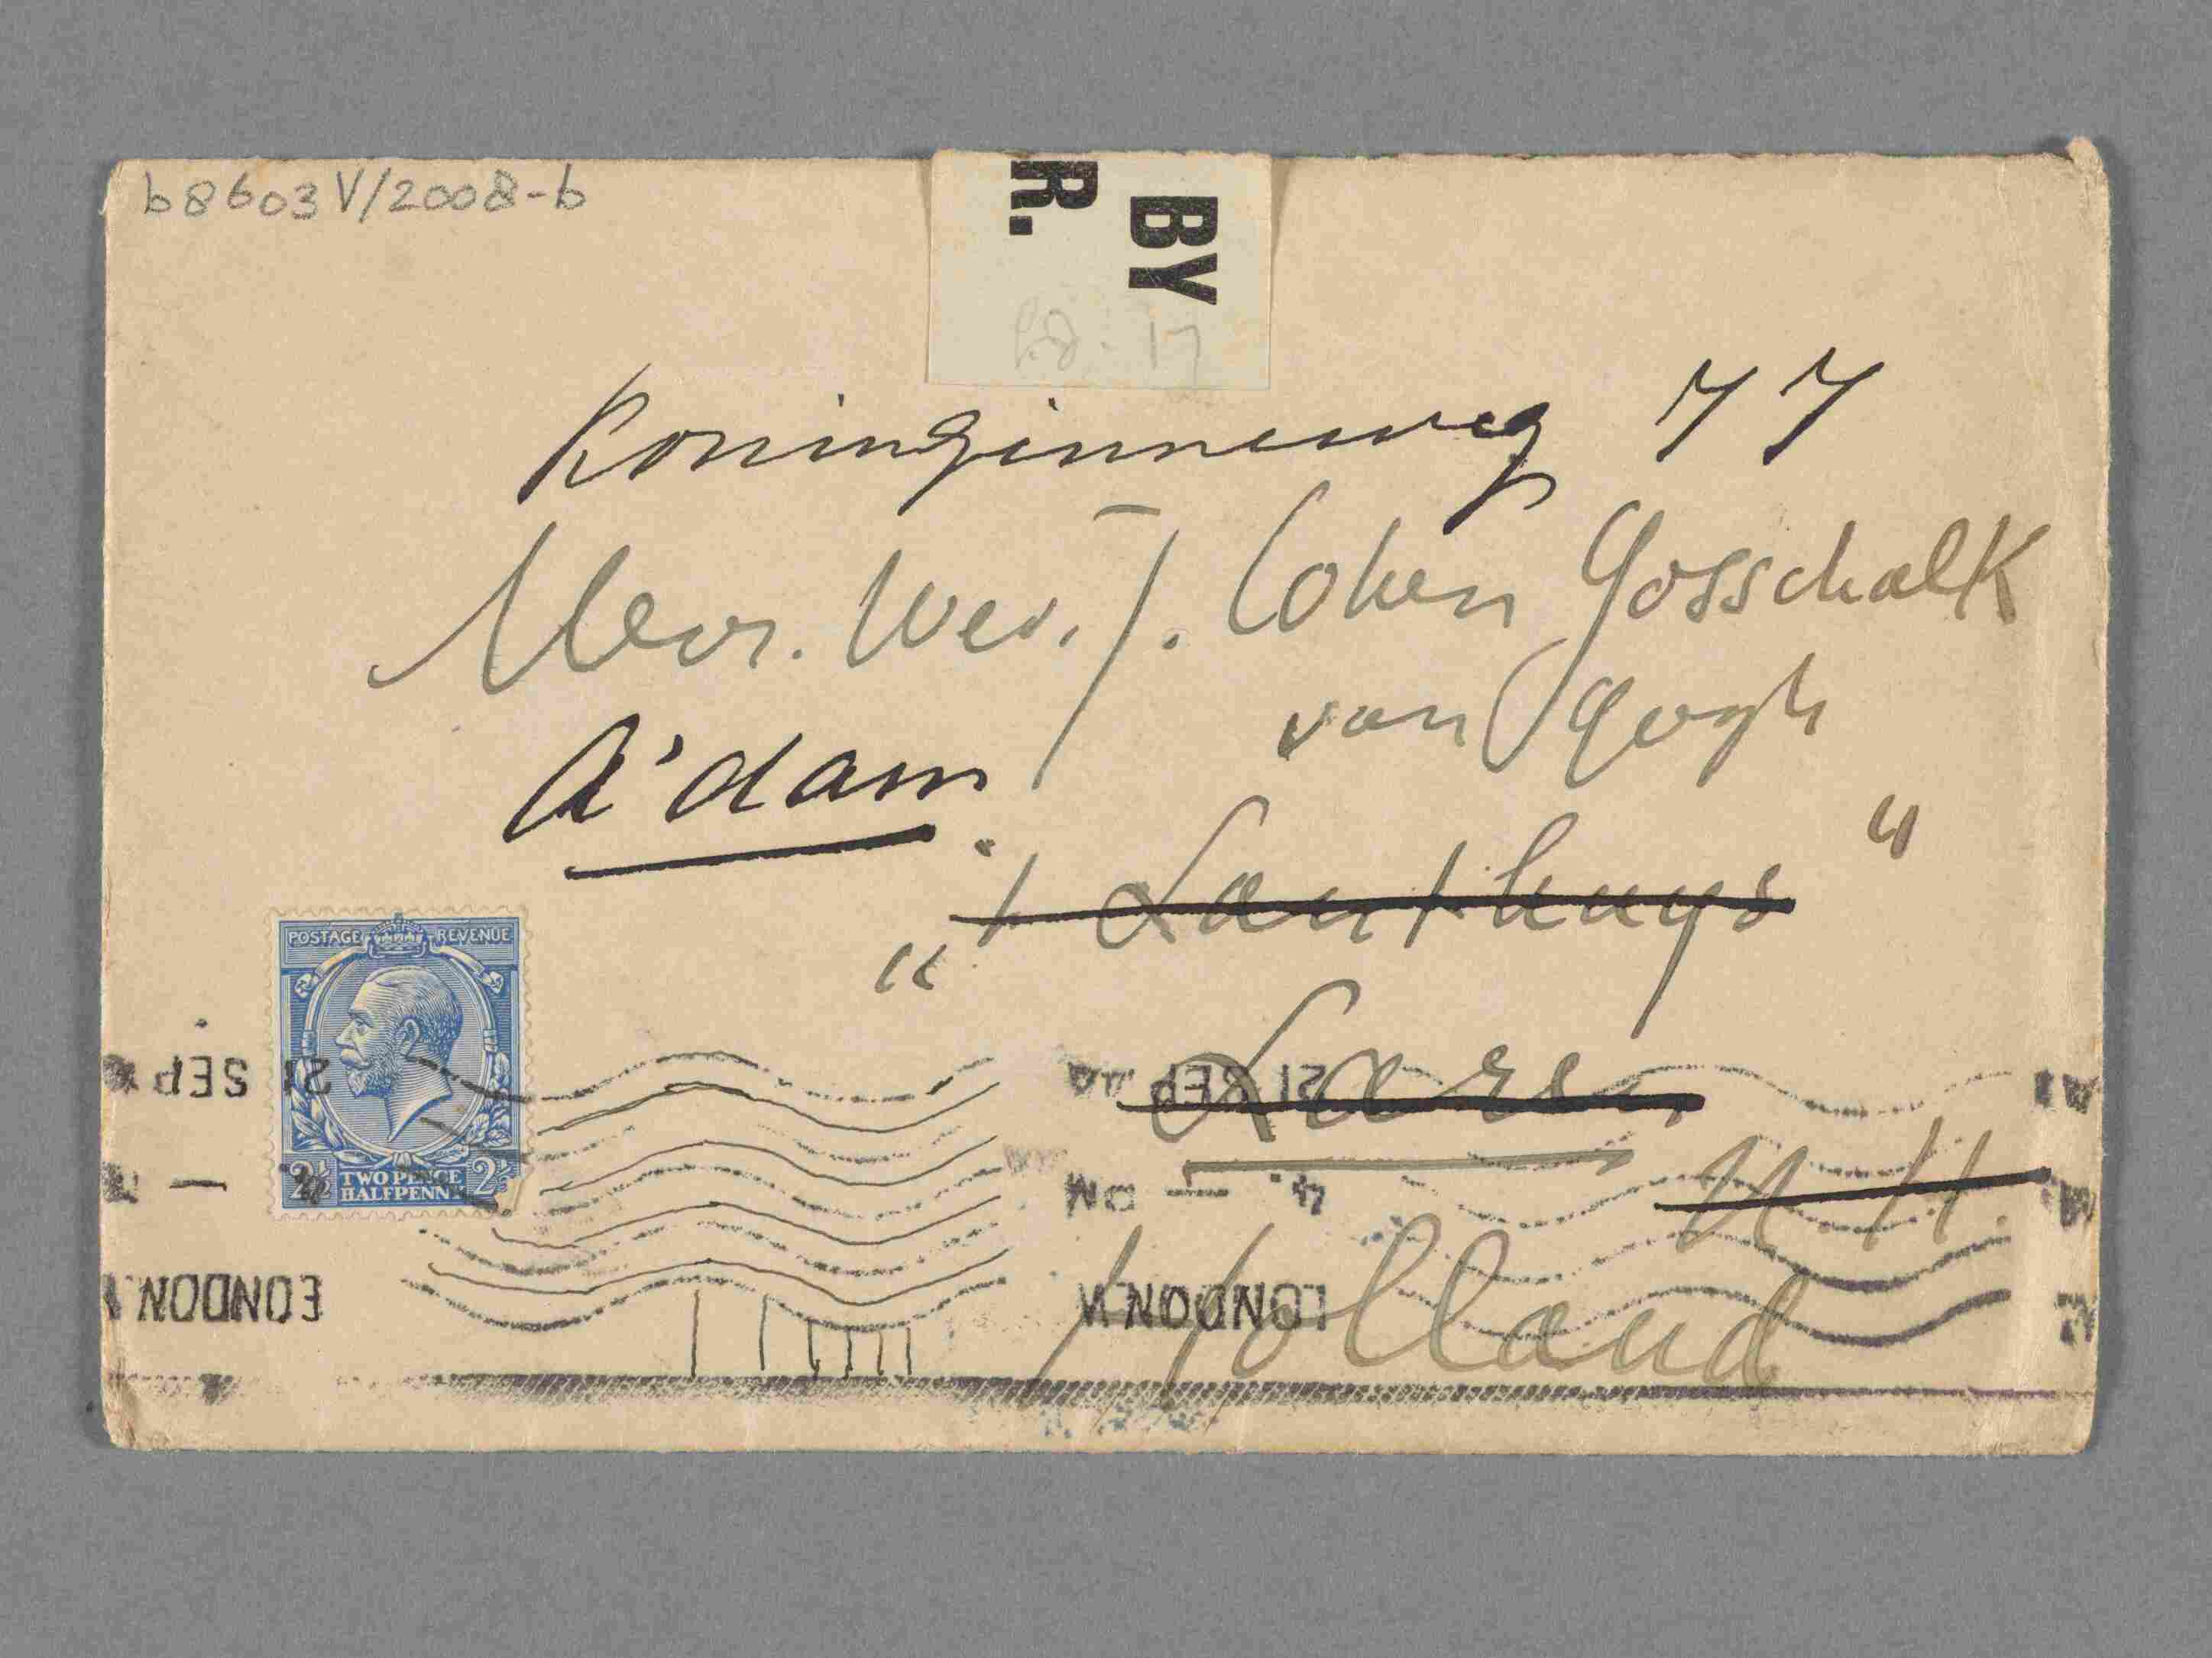 b8603 V/2008-b
BY
R.
Koninginneweg 77
Mevr. Wed. J. Cohen Gosschalk
van Gogh
A'dam.
"'t Lanthuys"
Laren
N.H.
Holland
POSTAGE REVENUE
2½ TWO PENCE HALFPENNY 2½
21 SEP
LONDON
21 SEP
4. — PM
LONDON